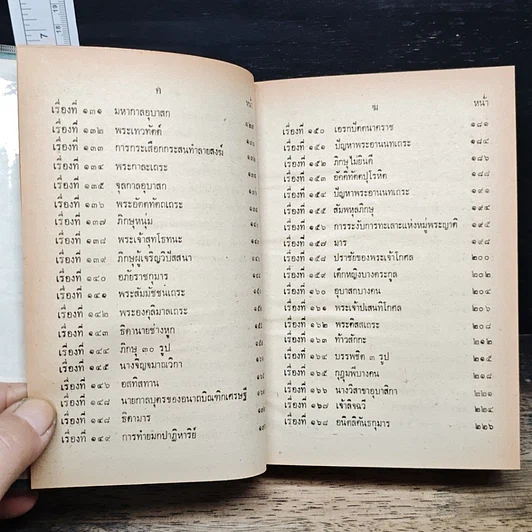 ค
เรื่องที่ ๑๓๑ มหากาลอุบาสก
เรื่องที่ ๑๓๒ พระเทวทัตต์
เรื่องที่ ๑๓๓ การกระเสือกกระสนทำลายสงฆ์
เรื่องที่ ๑๓๔ พระกาละเถระ
เรื่องที่ ๑๓๕ จุลกาลอุบาสก
เรื่องที่ ๑๓๖ พระอัตตทัตถเถระ
เรื่องที่ ๑๓๗ ภิกษุหนุ่ม
เรื่องที่ ๑๓๘ พระเจ้าสุทโธทนะ
เรื่องที่ ๑๓๙ ภิกษุผู้เจริญวิปัสสนา
เรื่องที่ ๑๔๐ อภัยราชกุมาร
เรื่องที่ ๑๔๑ พระสัมมัชชนเถระ
เรื่องที่ ๑๔๒ พระองคุลิมาลเถระ
เรื่องที่ ๑๔๓ ธิดานายช่างหูก
เรื่องที่ ๑๔๔ ภิกษุ ๓๐ รูป
เรื่องที่ ๑๔๕ นางจิญจมาณวิกา
เรื่องที่ ๑๔๖ อสทิสทาน
เรื่องที่ ๑๔๗ นายกาลบุตรของอนาถบิณฑิกเศรษฐี
เรื่องที่ ๑๔๘ ธิดามาร
เรื่องที่ ๑๔๙ การทำยมกปาฏิหาริย์
ฆ
หน้า
เรื่องที่ ๑๕๐ เอรกปัตตนาคราช ๑๘๑
เรื่องที่ ๑๕๑ ปัญหาพระอานนทเถระ ๑๘๕
เรื่องที่ ๑๕๒ ภิกษุไม่ยินดี ๑๘๖
เรื่องที่ ๑๕๓ อัคคิทัตตปุโรหิต
เรื่องที่ ๑๕๔ ปัญหาพระอานนทเถระ
เรื่องที่ ๑๕๕ สัมพหุลภิกษุ ๑๙๔
เรื่องที่ ๑๕๖ การระงับการทะเลาะแห่งหมู่พระญาติ ๑๙๕
เรื่องที่ ๑๕๗ มาร ๑๙๘
เรื่องที่ ๑๕๘ ปราชัยของพระเจ้าโกศล ๒๐๐
เรื่องที่ ๑๕๙ เด็กหญิงบางตระกูล ๒๐๒
เรื่องที่ ๑๖๐ อุบาสกบางคน ๒๐๔
เรื่องที่ ๑๖๑ พระเจ้าปเสนทิโกศล ๒๐๖
เรื่องที่ ๑๖๒ พระติสสเถระ ๒๐๘
เรื่องที่ ๑๖๓ ท้าวสักกะ
เรื่องที่ ๑๖๔ บรรพชิต ๓ รูป ๒๑๕
เรื่องที่ ๑๖๕ กุฎุมพีบางคน
เรื่องที่ ๑๖๖ นางวิสาขาอุบาสิกา
เรื่องที่ ๑๖๗ เจ้าลิจฉวี ๒๒๔
เรื่องที่ ๑๖๘ อนิตถิคันธกุมาร ๒๒๖